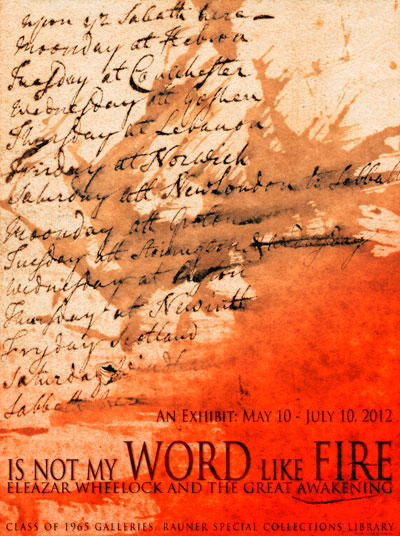 upon ye Sabath here
Moonday at Hebron
Tuesday at Conlchester
Wednesday att Goshen
Thursday at Lebanon
Fryday at Norwich
Saturday att New London to Sabbath
Moonday att Groton
Tuesday att Stonington &
Wednesday at
Thursday at Newintt
Fryday Scotland
Saturday
Sabbath here
AN EXHIBIT: MAY 10 - JULY 10, 2012
IS NOT MY WORD LIKE FIRE
ELEAZAR WHEELOCK AND THE GREAT AWAKENING
CLASS OF 1965 GALLERIES, RAUNER SPECIAL COLLECTIONS LIBRARY